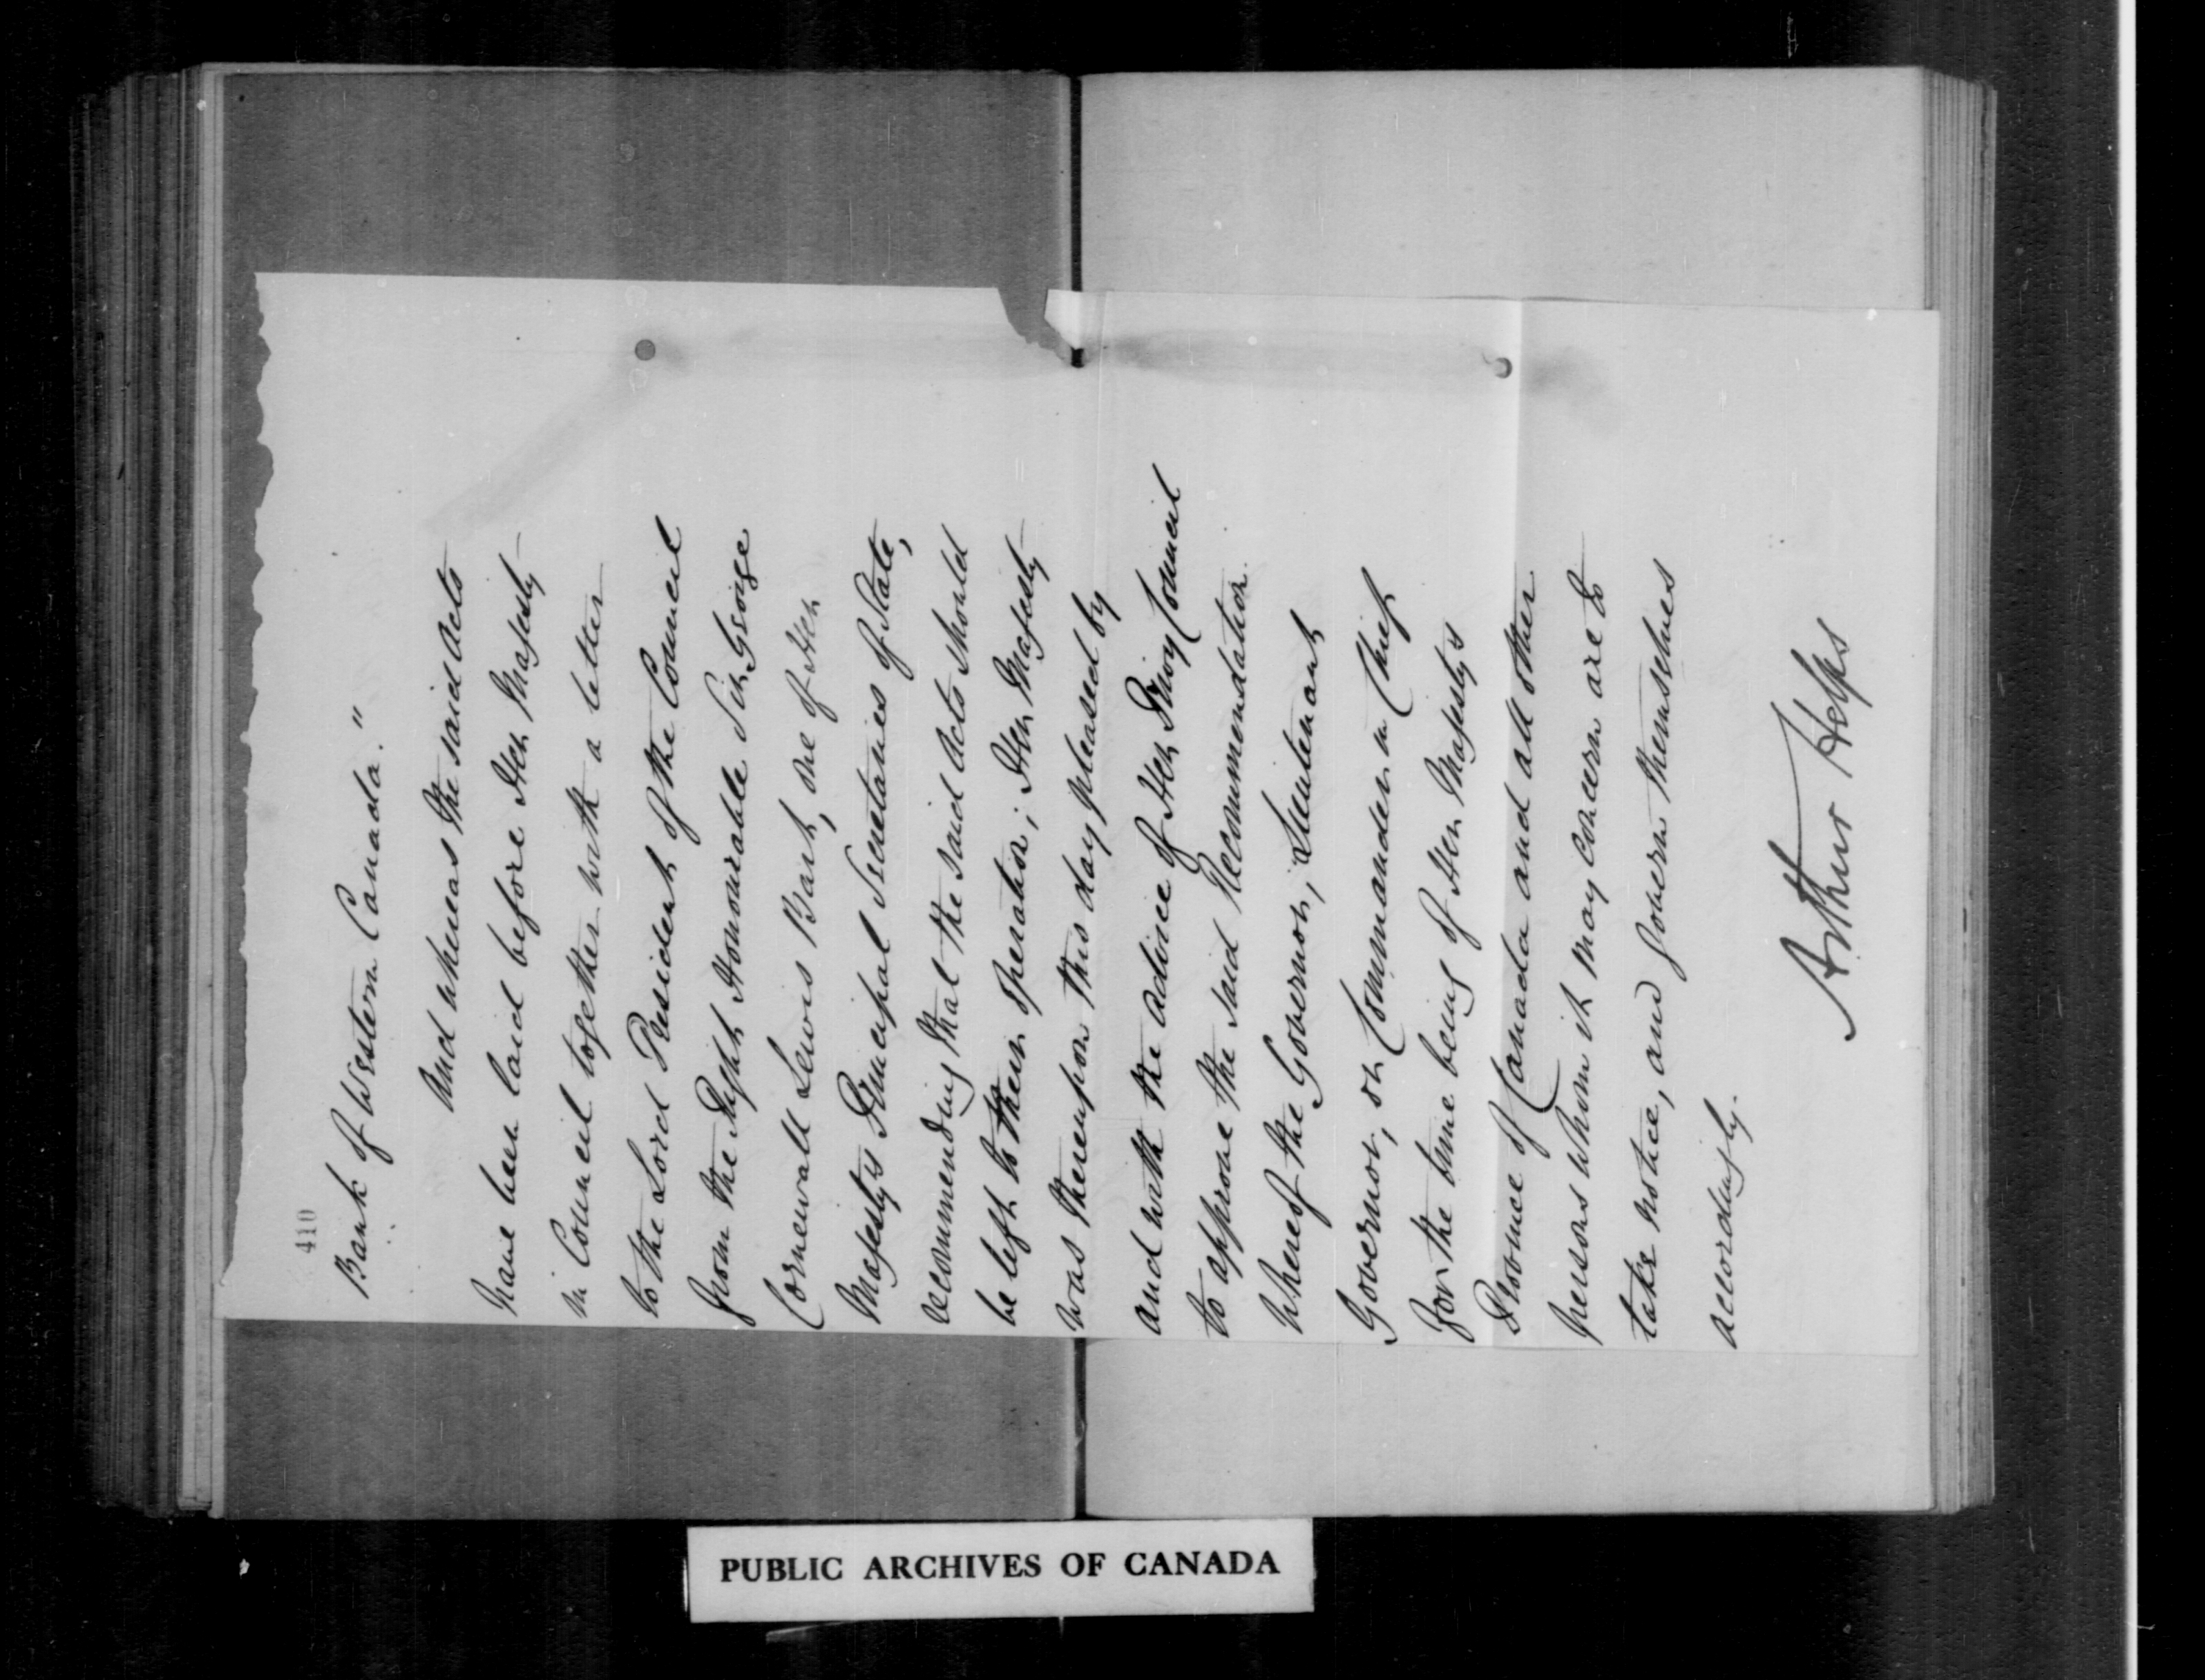 410
Bank of Western Canada."
And whereas the said Acts
have been laid before Her Majesty
in Council together with a letter
to the Lord President of the Council
from the Right Honourable Sir George
Cornewall Lewis Bart, one of Her
Majesty's Principal Secretaries of State,
recommending that the said Acts should
be left to their operation; Her Majesty
was thereupon this day pleased by
and with the advice of Her Privy Council
to approve the said Recommendation.
Whereof the Governor, Lieutenant
Governor, or Commander in Chief
for the time being of Her Majesty's
Province of Canada and all other
persons whom it may concern are to
take notice, and govern themselves
accordingly.
Arthur Helps
PUBLIC ARCHIVES OF CANADA